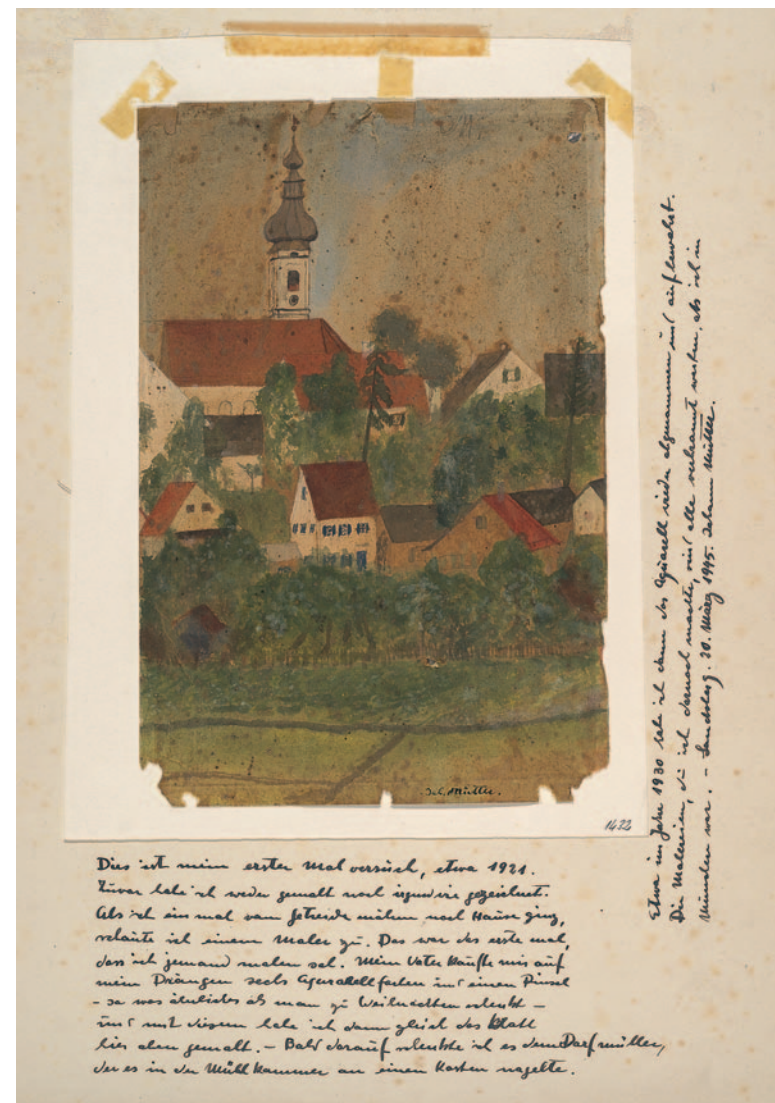 Joh. Mutter.
1432
Dies ist mein erster Mal versuch, etwa 1921.
Zuvor habe ich weder gemalt noch irgendwie gezeichnet.
Als ich ein mal vom Getreide mähen nach Hause ging,
schaute ich einem Maler zu. Das war das erste mal,
dass ich jemand malen sah. Mein Vater kaufte mir auf
mein Drängen sechs Aquarellfarben und einen Pinsel
- so was ähnliches als man zu Weihnachten schenkt -
und mit diesen habe ich dann gleich das Blatt
hier oben gemalt. - Bald darauf schenkte ich es dem Dorfmüller,
der es in der Mühlkammer an einen Kasten nagelte.
Etwa im Jahre 1930 habe ich dann das Aquarell wieder abgenommen und aufbewahrt.
Die Malereien, die ich darnach machte, sind alle verbrannt worden, als ich in
München war. - Landsberg. 20. März 1945. Johann Mutter.